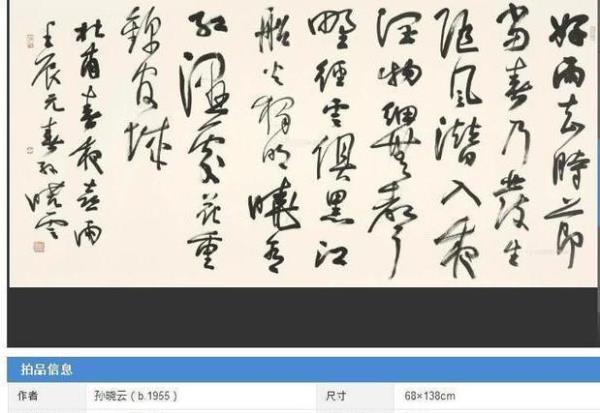 好雨知時節
當春乃發生
隨風潛入夜
潤物細無聲
野徑雲俱黑江
船火獨明曉看
紅濕處花重
錦官城
杜甫春夜喜雨
壬辰元春孫曉雲
拍品信息
作者 孙晓云（b.1955） 尺寸 68×138cm